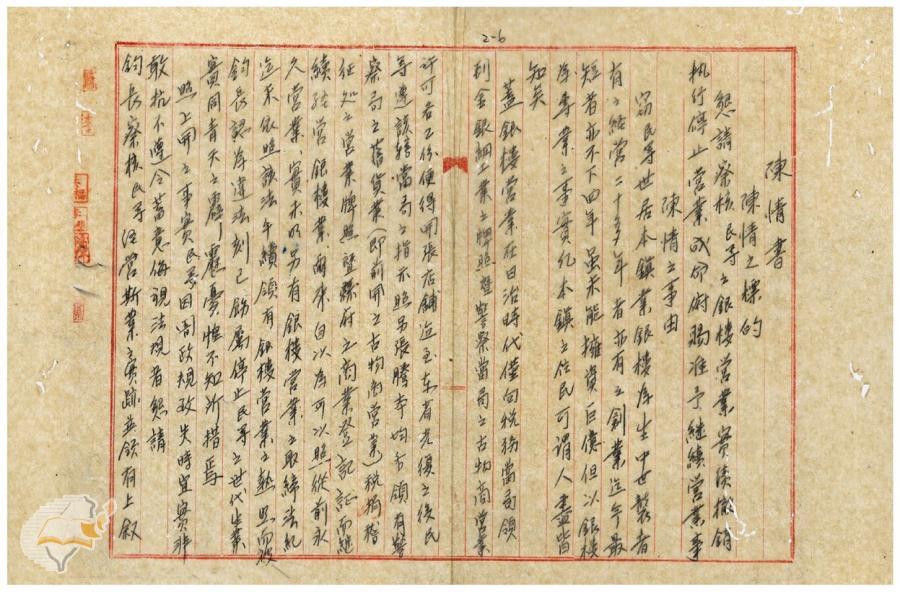 2-6
陳情書
陳情之標的
懇請察核民等之銀樓營業實績撤銷
執行停止營業成命俯賜准予繼續營業事
陳情之事由
窃民等世居本鎮業銀樓為生中世襲者
有之經營二十多年者亦有之創業迄今最
短者亦不下四年虽未能擁資巨億但以銀樓
為專業之事實紀本鎮之住民可謂人盡皆
知矣
蓋銀樓營業在日治時代僅向稅務當局領
到金銀細工業之牌照暨警察當局之古物商營業
許可者工份便得開張店舖迨至本省光復之後民
等遵該轄當局之指示照另張騰本均另領有警
察局之舊貨業(即前開之古物商營業)稅捐稽
征処之營業牌照暨縣府之商業登記証而繼
續經營銀樓業兩來自以為可以照從前永
久營業、實未明另有銀樓營業之取締法規
迄未依照該法手續領有銀樓營業之執照而被
鈞長認為違法刻已飭屬停止民等之世代生業
實同青天之霹靂憂惶不知所措焉
照上開之事實民等因闇政規致失時宜實非
敢抗不遵令蓄意侮視法規者懇請
鈞長察核民等經營斯業之實蹟並領有上叙